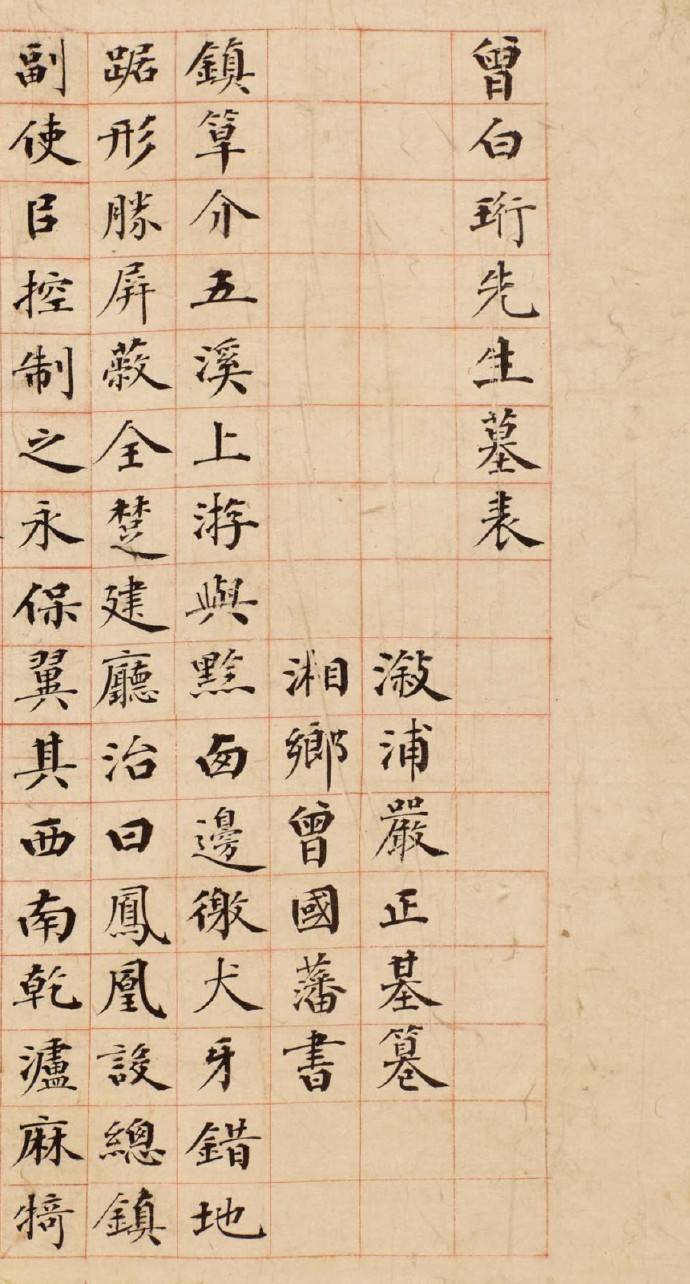 曾白珩先生墓表
溆浦嚴正基篹
湘鄉曾國藩書
鎮筸介五溪上游與黔西邊徼犬牙錯地
踞形勝屏蔽全楚建廳治曰鳳凰設總鎮
副使臣控制之永保翼其西南乾瀘麻犄